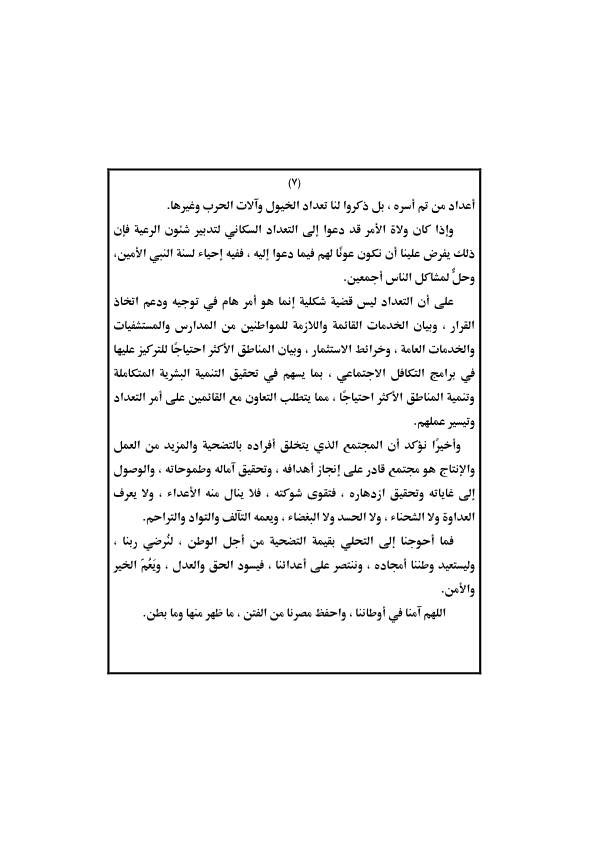 (٧)
أعداد من تم أسره ، بل ذكروا لنا تعداد الخيول وآلات الحرب وغيرها.
وإذا كان ولاة الأمر قد دعوا إلى التعداد السكاني لتدبير شئون الرعية فإن
ذلك يفرض علينا أن نكون عونًا لهم فيما دعوا إليه ، ففيه إحياء لسنة النبي الأمين،
وحلٌّ لمشاكل الناس أجمعين.
على أن التعداد ليس قضية شكلية إنما هو أمر هام في توجيه ودعم اتخاذ
القرار ، وبيان الخدمات القائمة واللازمة للمواطنين من المدارس والمستشفيات
والخدمات العامة ، وخرائط الاستثمار ، وبيان المناطق الأكثر احتياجًا للتركيز عليها
في برامج التكافل الاجتماعي ، بما يسهم في تحقيق التنمية البشرية المتكاملة
وتنمية المناطق الأكثر احتياجًا ، مما يتطلب التعاون مع القائمين على أمر التعداد
وتيسير عملهم.
وأخيرًا نؤكد أن المجتمع الذي يتخلق أفراده بالتضحية والمزيد من العمل
والإنتاج هو مجتمع قادر على إنجاز أهدافه ، وتحقيق آماله وطموحاته ، والوصول
إلى غاياته وتحقيق ازدهاره ، فتقوى شوكته ، فلا ينال منه الأعداء ، ولا يعرف
العداوة ولا الشحناء ، ولا الحسد ولا البغضاء ، ويعمه التآلف والتواد والتراحم.
فما أحوجنا إلى التحلي بقيمة التضحية من أجل الوطن ، لنُرضي ربنا ،
وليستعيد وطننا أمجاده ، وننتصر على أعدائنا ، فيسود الحق والعدل ، ويَعُمّ الخير
والأمن.
اللهم آمنا في أوطاننا ، واحفظ مصرنا من الفتن ، ما ظهر منها وما بطن.